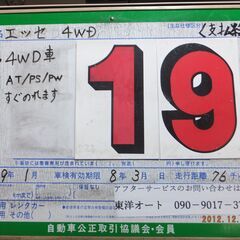 エッセ 4WD
4WD車
AT/PS/PW
すぐのれます
19
年1月 車検有効期限 8年3月 走行距離 76千
用 レンタカー
用 その他(
アフターサービスのお問い合わせは
東洋オート 090-9017-3
自動車公正取引協議会・会員
2012.12.